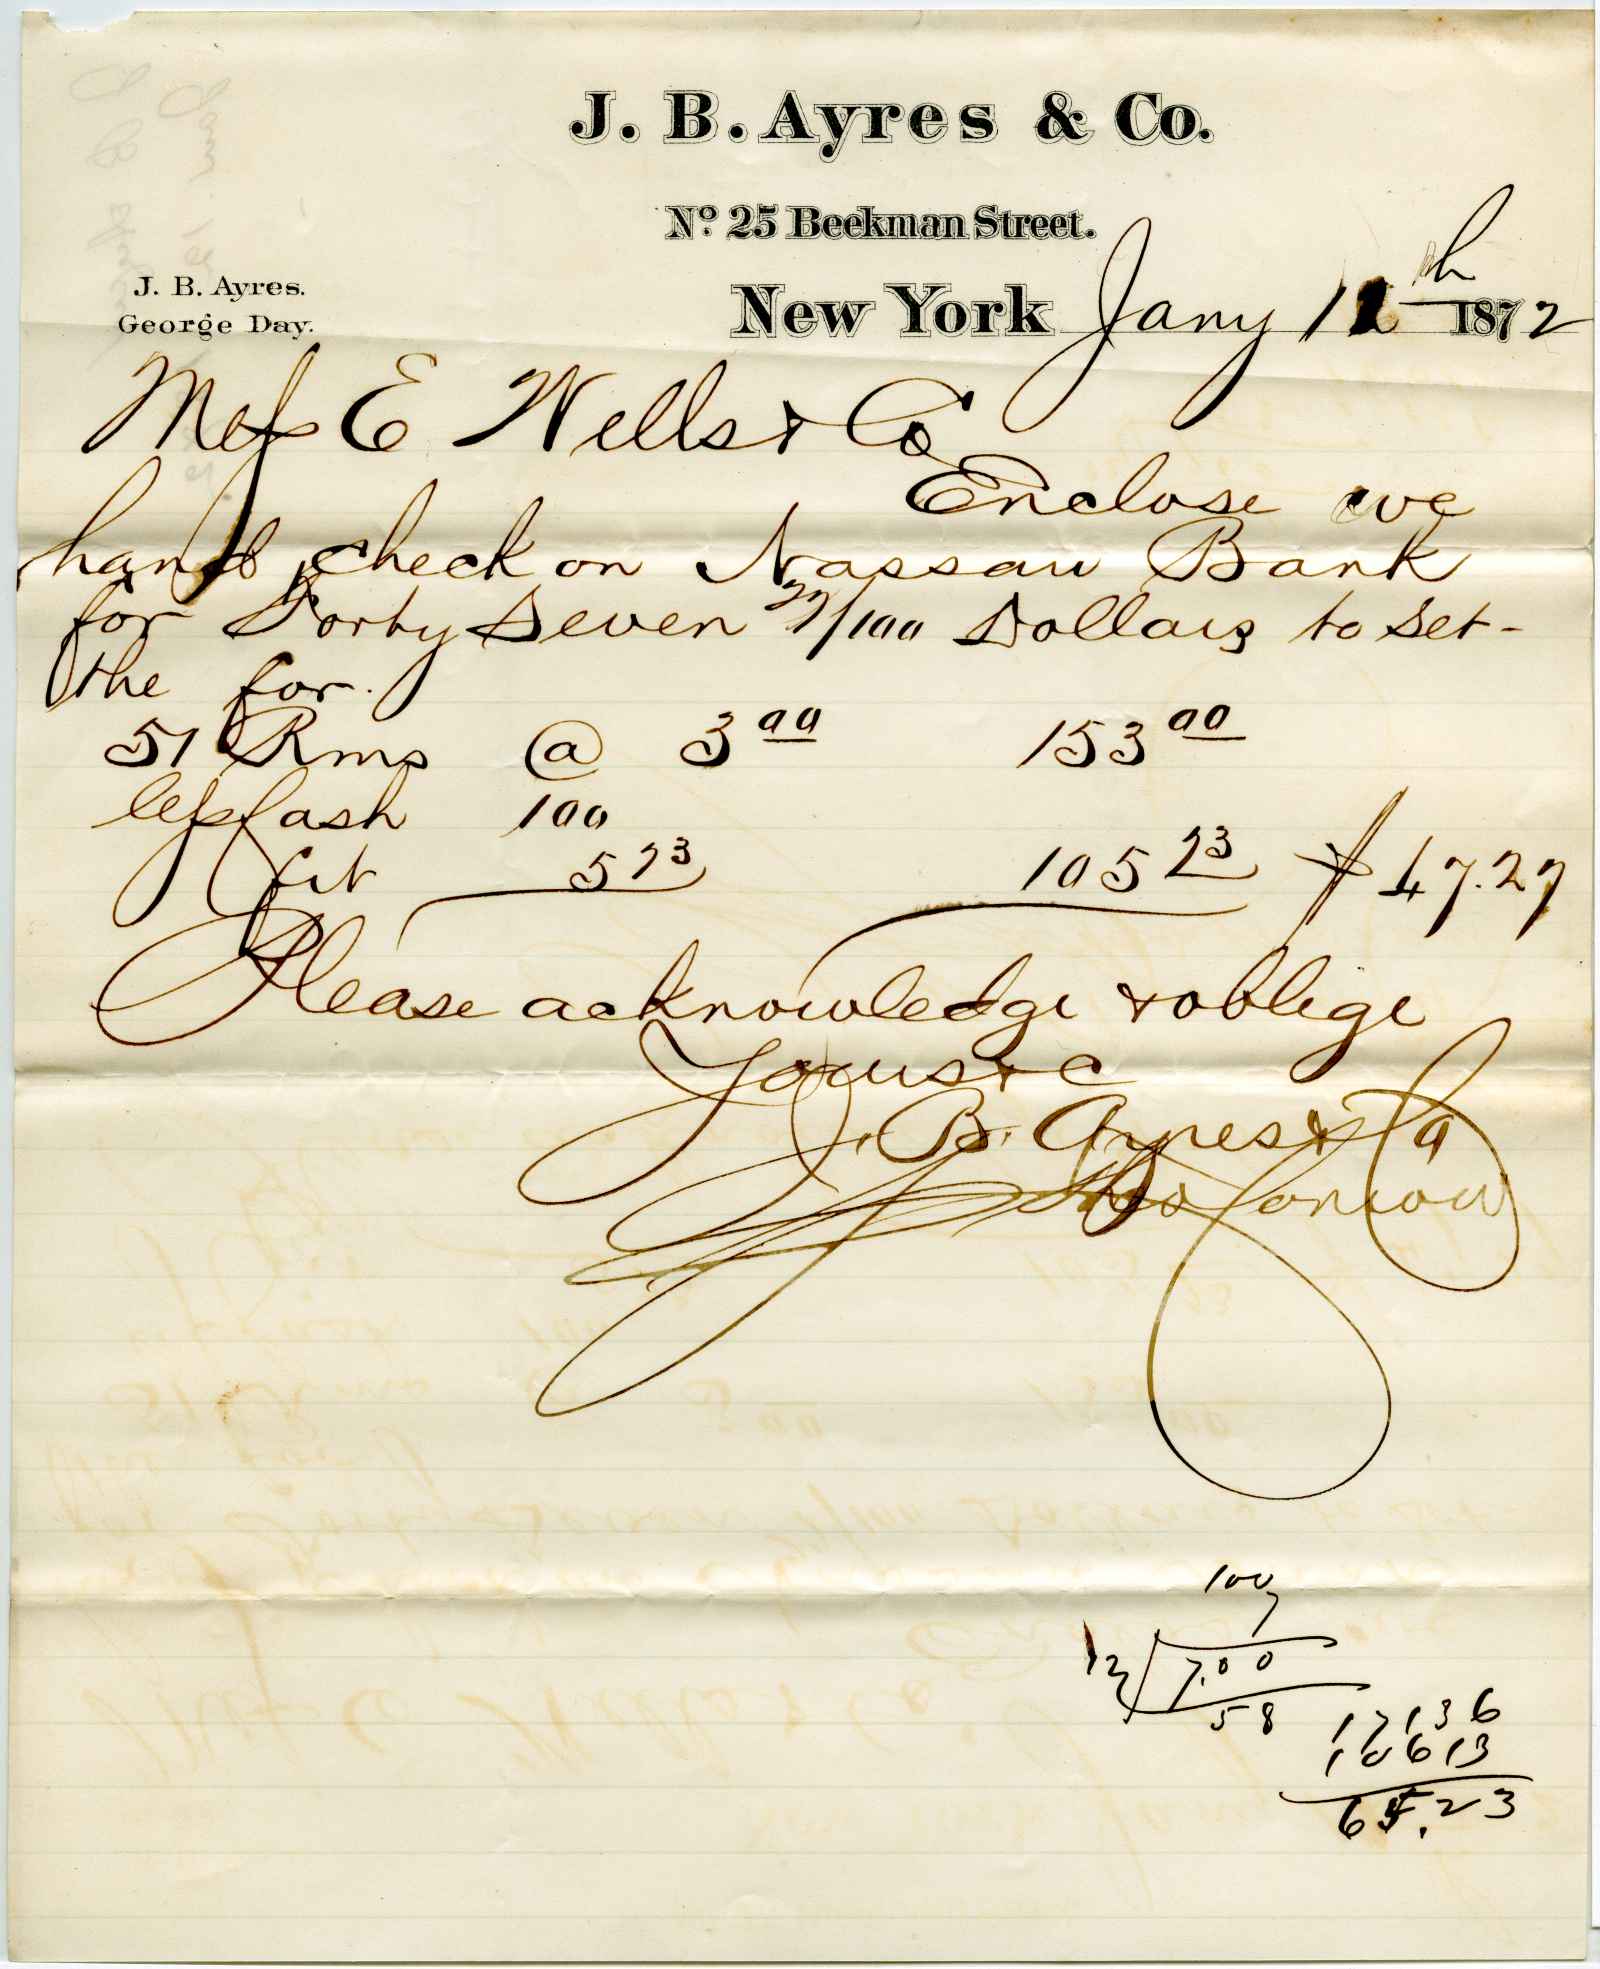 J. B. Ayres & Co.
No. 25 Beekman Street.
J. B. Ayres.
George Day.
New York Jany 12th 1872
Mess E Wells & Co
Enclose we
hand check on Nassau Bank
for Forty Seven 27/100 Dollars to set-
tle for.
51 Rms @ 3 00 153 00
Less Cash 100
frt 5 73 105 73 $ 47.27
Please acknowledge & oblige
Yours &c
J. B. Ayres & Co
100
7
12 7.00
58
17136
10613
65.23